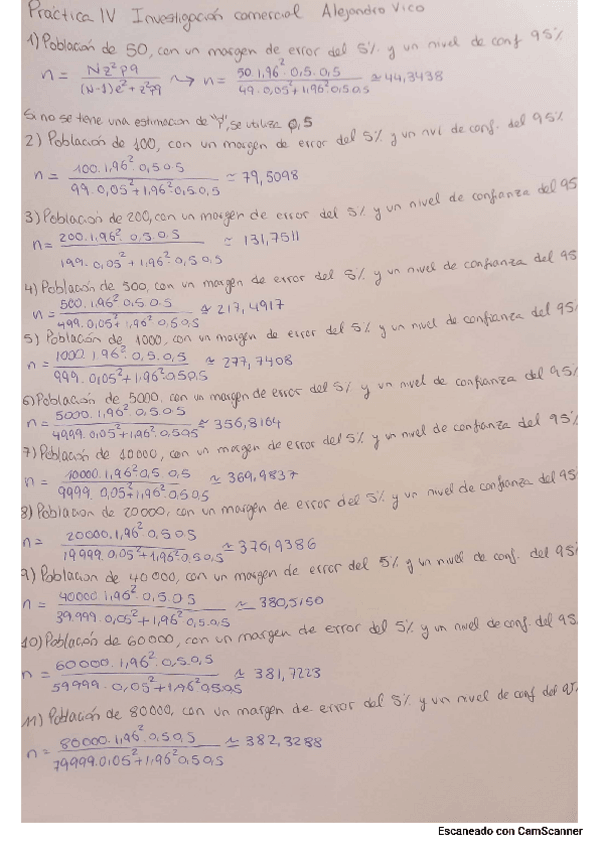 Práctica IV Investigación comercial Alejandro Vico
1) Población de 50, con un margen de error del 5% y un nivel de conf 95%
n = Nz²pq / (N-1)e² + z²pq ⇝ n = 50.1,96².0,5.0,5 / 49.0,05²+1,96².0,5.0,5 ≃ 44,3438
Si no se tiene una estimacion de "p", se utiliza 0,5
2) Población de 100, con un margen de error del 5% y un nvl de conf. del 95%
n = 100.1,96².0,5.0,5 / 99.0,05²+1,96².0,5.0,5 ≃ 79,5098
3) Poblacion de 200, con un margen de error del 5% y un nivel de confianza del 95
n = 200.1,96².0,5.0,5 / 199.0,05²+1,96².0,5.0,5 ≃ 131,7511
4) Población de 500, con un margen de error del 5% y un nivel de confianza del 95
n = 500.1,96².0,5.0,5 / 499.0,05²+1,96².0,5.0,5 ≃ 217,4917
5) Población de 1000, con un margen de error del 5% y un nivel de confianza del 95%
n = 1000.1,96².0,5.0,5 / 999.0,05²+1,96².0,5.0,5 ≃ 277,7408
6) Población de 5000, con un margen de error del 5% y un nivel de confianza del 95%
n = 5000.1,96².0,5.0,5 / 4999.0,05²+1,96².0,5.0,5 ≃ 356,8164
7) Población de 10000, con un margen de error del 5% y un nivel de confianza del 95%
n = 10000.1,96².0,5.0,5 / 9999.0,05²+1,96².0,5.0,5 ≃ 369,9837
8) Poblacion de 20000, con un margen de error del 5% y un nivel de confianza del 95
n = 20000.1,96².0,5.0,5 / 19999.0,05²+1,96².0,5.0,5 ≃ 376,9386
9) Población de 40000, con un margen de error del 5% y un nivel de conf. del 95%
n = 40000.1,96².0,5.0,5 / 39.999.0,05²+1,96².0,5.0,5 ≃ 380,5150
10) Población de 60000, con un margen de error del 5% y un nivel de conf. del 95
n = 60000.1,96².0,5.0,5 / 59999.0,05²+1,96².0,5.0,5 ≃ 381,7223
11) Población de 80000, con un margen de error del 5% y un nivel de conf del 95
n = 80000.1,96².0,5.0,5 / 79999.0,05²+1,96².0,5.0,5 ≃ 382,3288
Escaneado con CamScanner